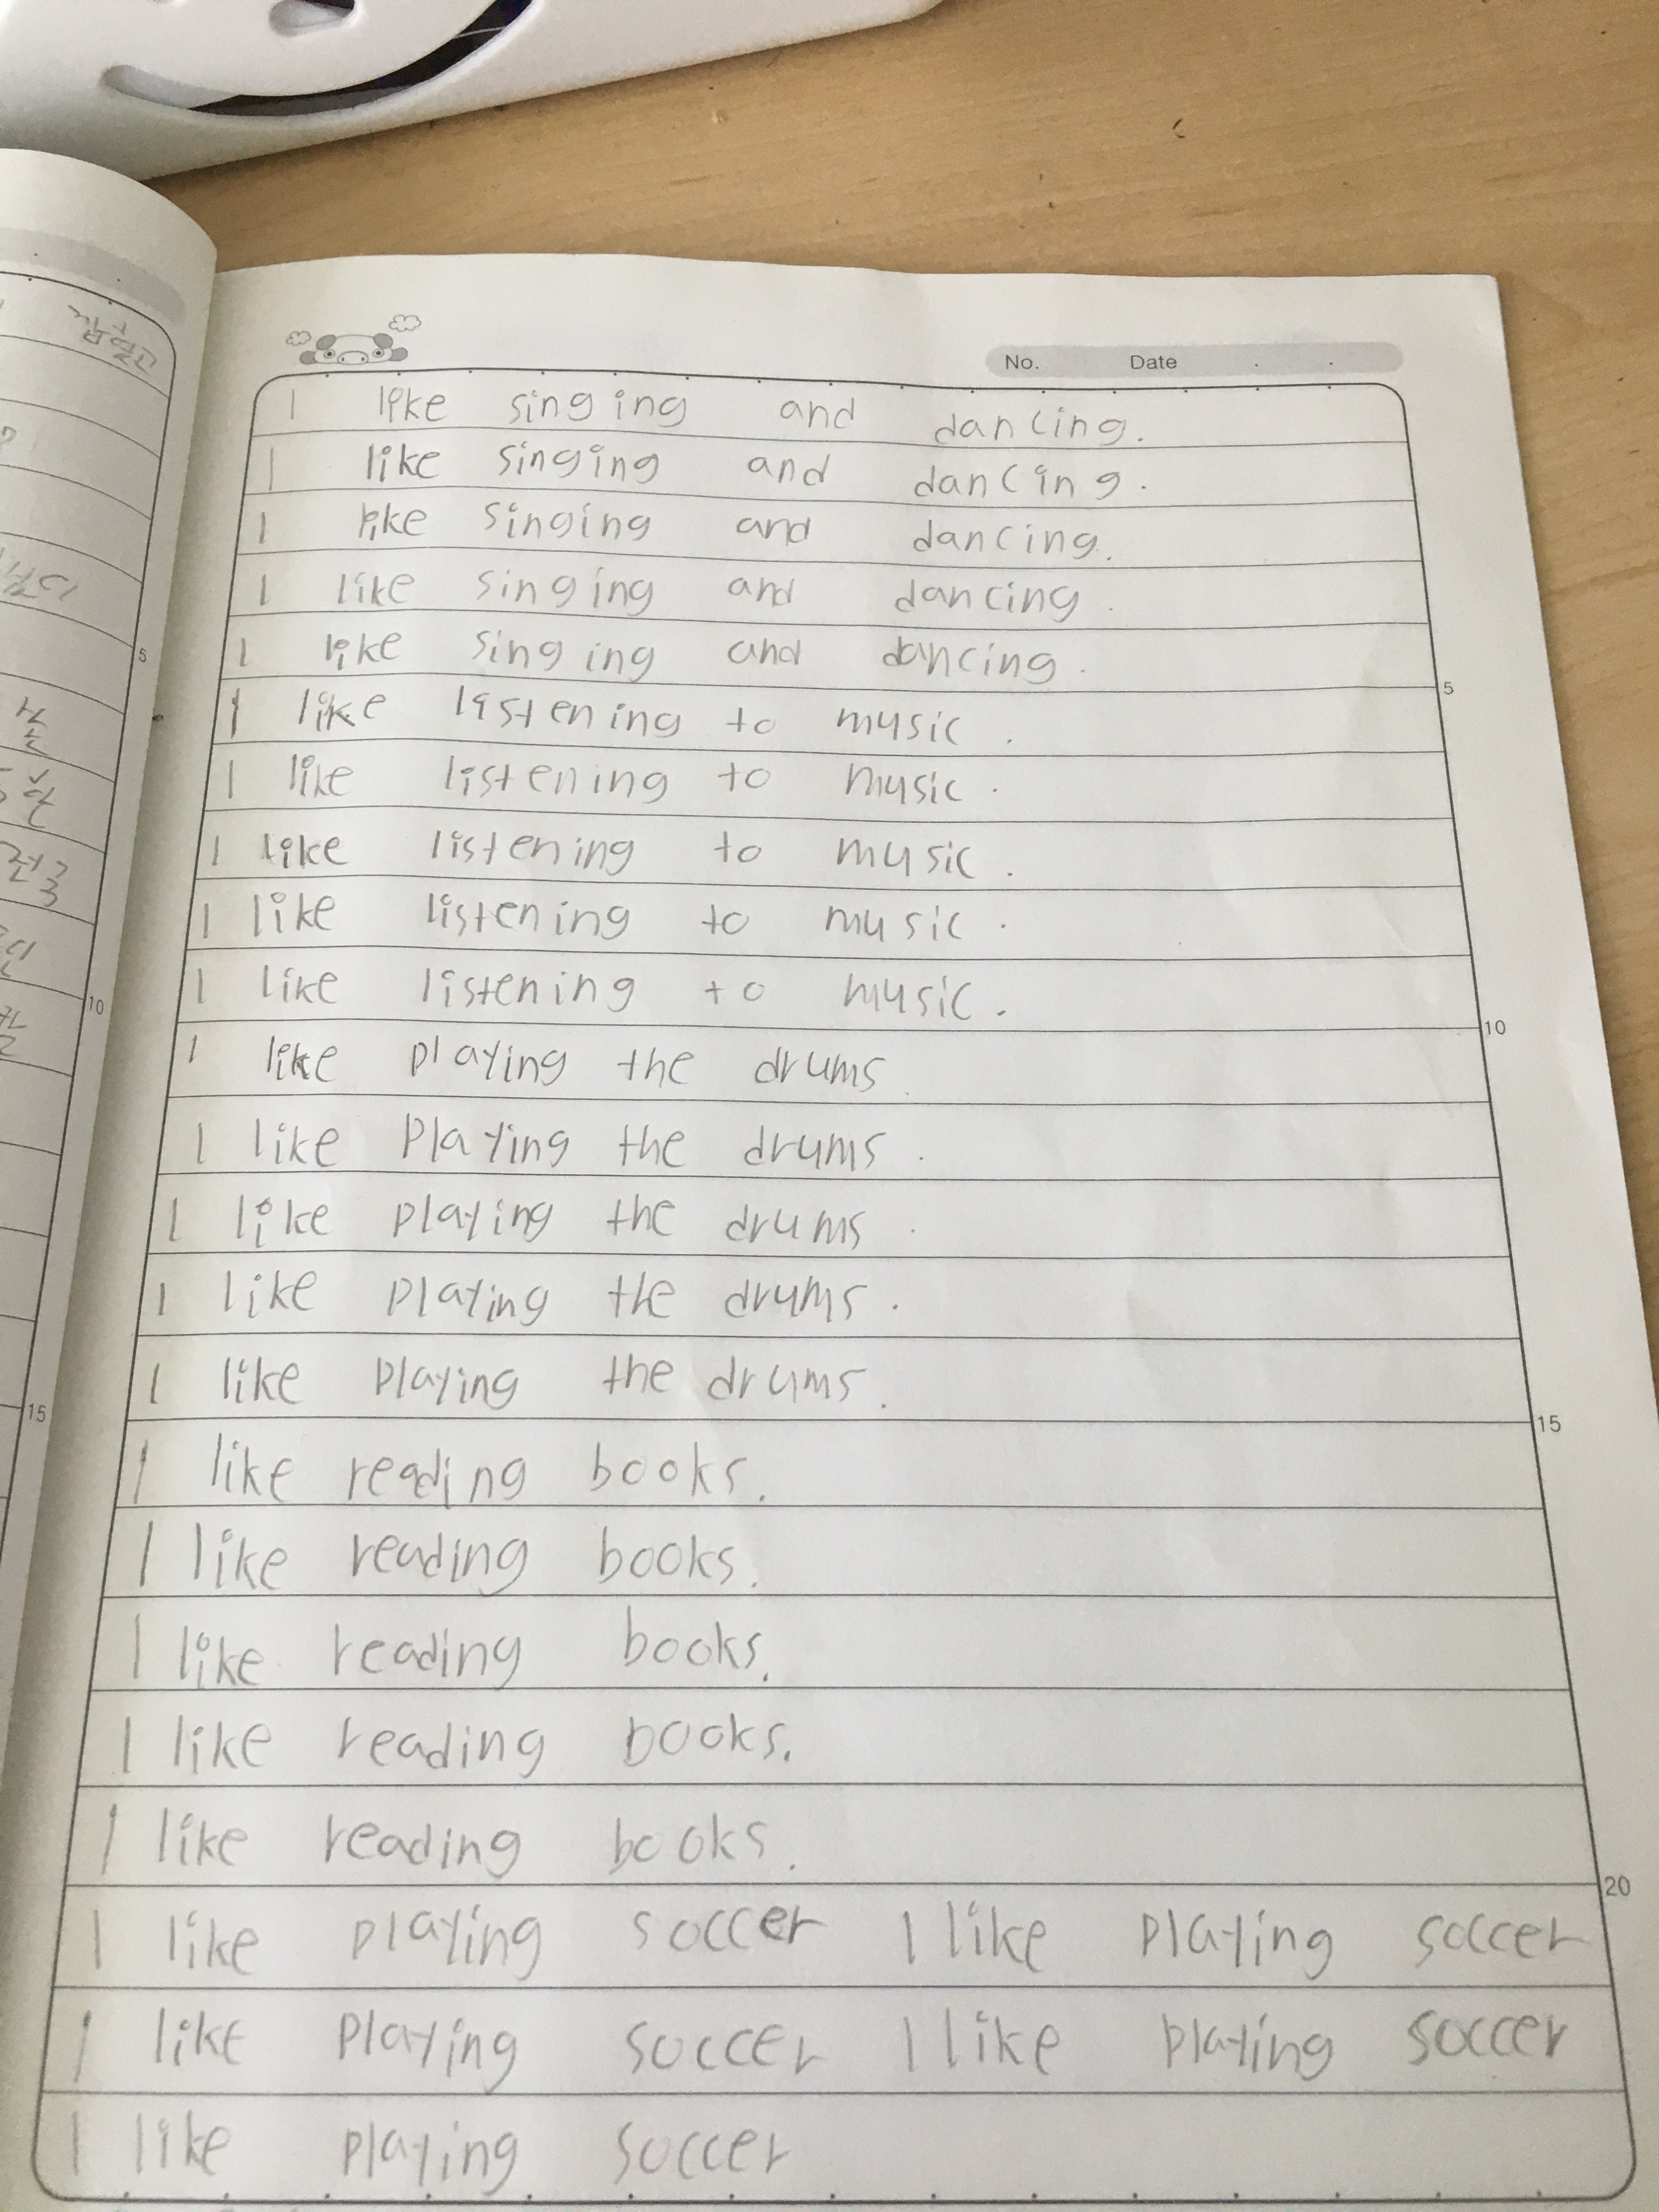 No. Date
I like singing and dancing.
I like singing and dancing.
I like singing and dancing.
I like singing and dancing.
I like singing and dancing.
5
I like listening to music.
I like listening to music.
I like listening to music.
I like listening to music.
I like listening to music.
10
I like playing the drums.
I like playing the drums.
I like playing the drums.
I like playing the drums.
I like playing the drums.
15
I like reading books.
I like reading books.
I like reading books.
I like reading books.
I like reading books.
20
I like playing soccer I like playing soccer
I like playing soccer I like playing soccer
I like playing soccer
5
10
15